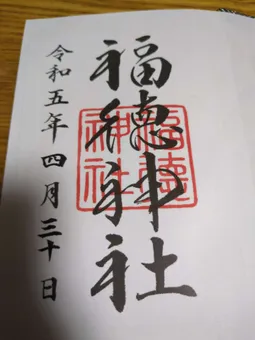 福徳神社
福徳
神社
令和五年四月三十日